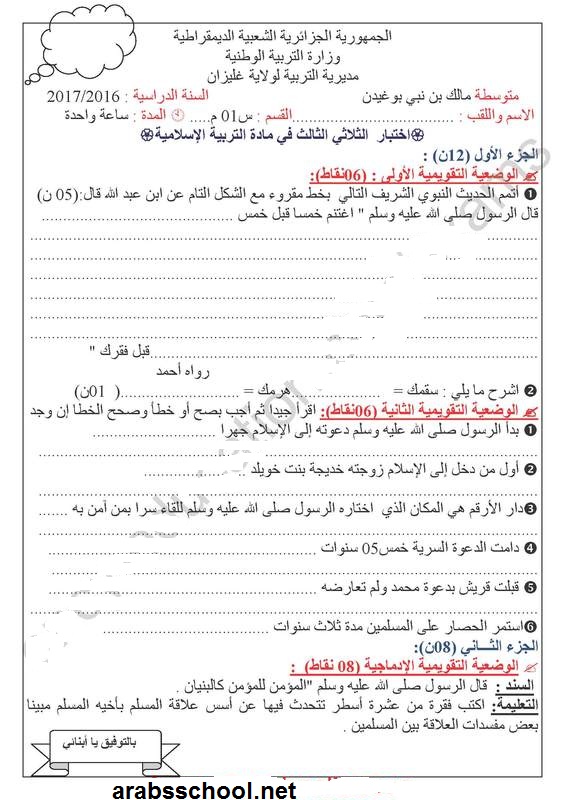 الجمهورية الجزائرية الشعبية الديمقراطية
وزارة التربية الوطنية
مديرية التربية لولاية غليزان
متوسطة مالك بن نبي بوغيدن السنة الدراسية : 2017/2016
الاسم واللقب: ............................ القسم : س01 م..... المدة : ساعة واحدة
اختبار الثلاثي الثالث في مادة التربية الإسلامية
الجزء الأول (12ن) :
الوضعية التقويمية الأولى : (06نقاط):
❶ أتمم الحديث النبوي الشريف التالي بخط مقروء مع الشكل التام عن ابن عبد الله قال:(05 ن)
قال الرسول صلى الله عليه وسلم " اغتنم خمسا قبل خمس ............................
قبل فقرك "
رواه أحمد
❷ اشرح ما يلي : سقمك = ................ هرمك = ........................( 01ن)
الوضعية التقويمية الثانية (06نقاط): اقرأ جيدا ثم أجب بصح أو خطأ وصحح الخطا إن وجد
❶ بدأ الرسول صلى الله عليه وسلم دعوته إلى الإسلام جهرا ................
❷ أول من دخل إلى الإسلام زوجته خديجة بنت خويلد ................
❸دار الأرقم هي المكان الذي اختاره الرسول صلى الله عليه وسلم للقاء سرا بمن أمن به .......
❹ دامت الدعوة السرية خمس05 سنوات ................
❺ قبلت قريش بدعوة محمد ولم تعارضه ................
❻استمر الحصار على المسلمين مدة ثلاث سنوات ................
الجزء الثـــاني (08ن):
الوضعية التقويمية الإدماجية (08 نقاط) :
السند : قال الرسول صلى الله عليه وسلم "المؤمن للمؤمن كالبنيان .
التعليمة: اكتب فقرة من عشرة أسطر تتحدث فيها عن أسس علاقة المسلم بأخيه المسلم مبينا
بعض مفسدات العلاقة بين المسلمين .
بالتوفيق يا أبنائي
arabsschool.net